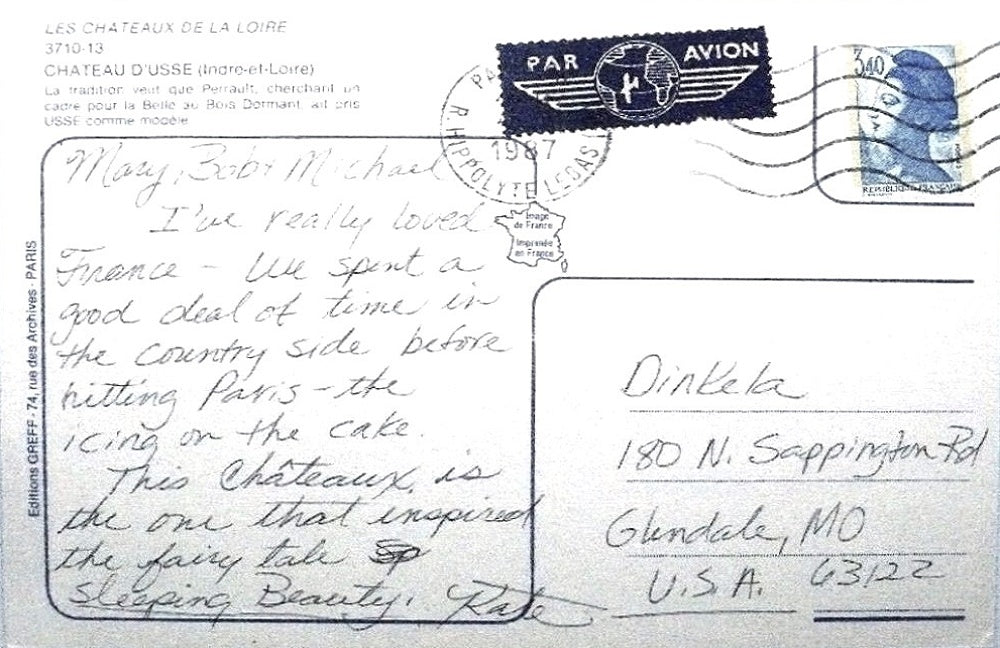 LES CHATEAUX DE LA LOIRE
3710-13
CHATEAU D'USSE (Indre-et-Loire)
La tradition veut que Perrault, cherchant un
cadre pour la Belle au Bois Dormant, ait pris
USSE comme modèle.
PAR AVION
3,40
REPUBLIQUE FRANÇAISE
PA
1987
R. HIPPOLYTE LEBAS
Image
de France
Imprimée
en France
Editions GREFF - 74, rue des Archives - PARIS
Mary, Bob + Michael
I've really loved
France - We spent a
good deal of time in
the country side before
hitting Paris - the
icing on the cake.
This Châteaux is
the one that inspired
the fairy tale Sp
Sleeping Beauty. Kate
Dinkela
180 N. Sappington Rd
Glendale, MO
U.S.A. 63122